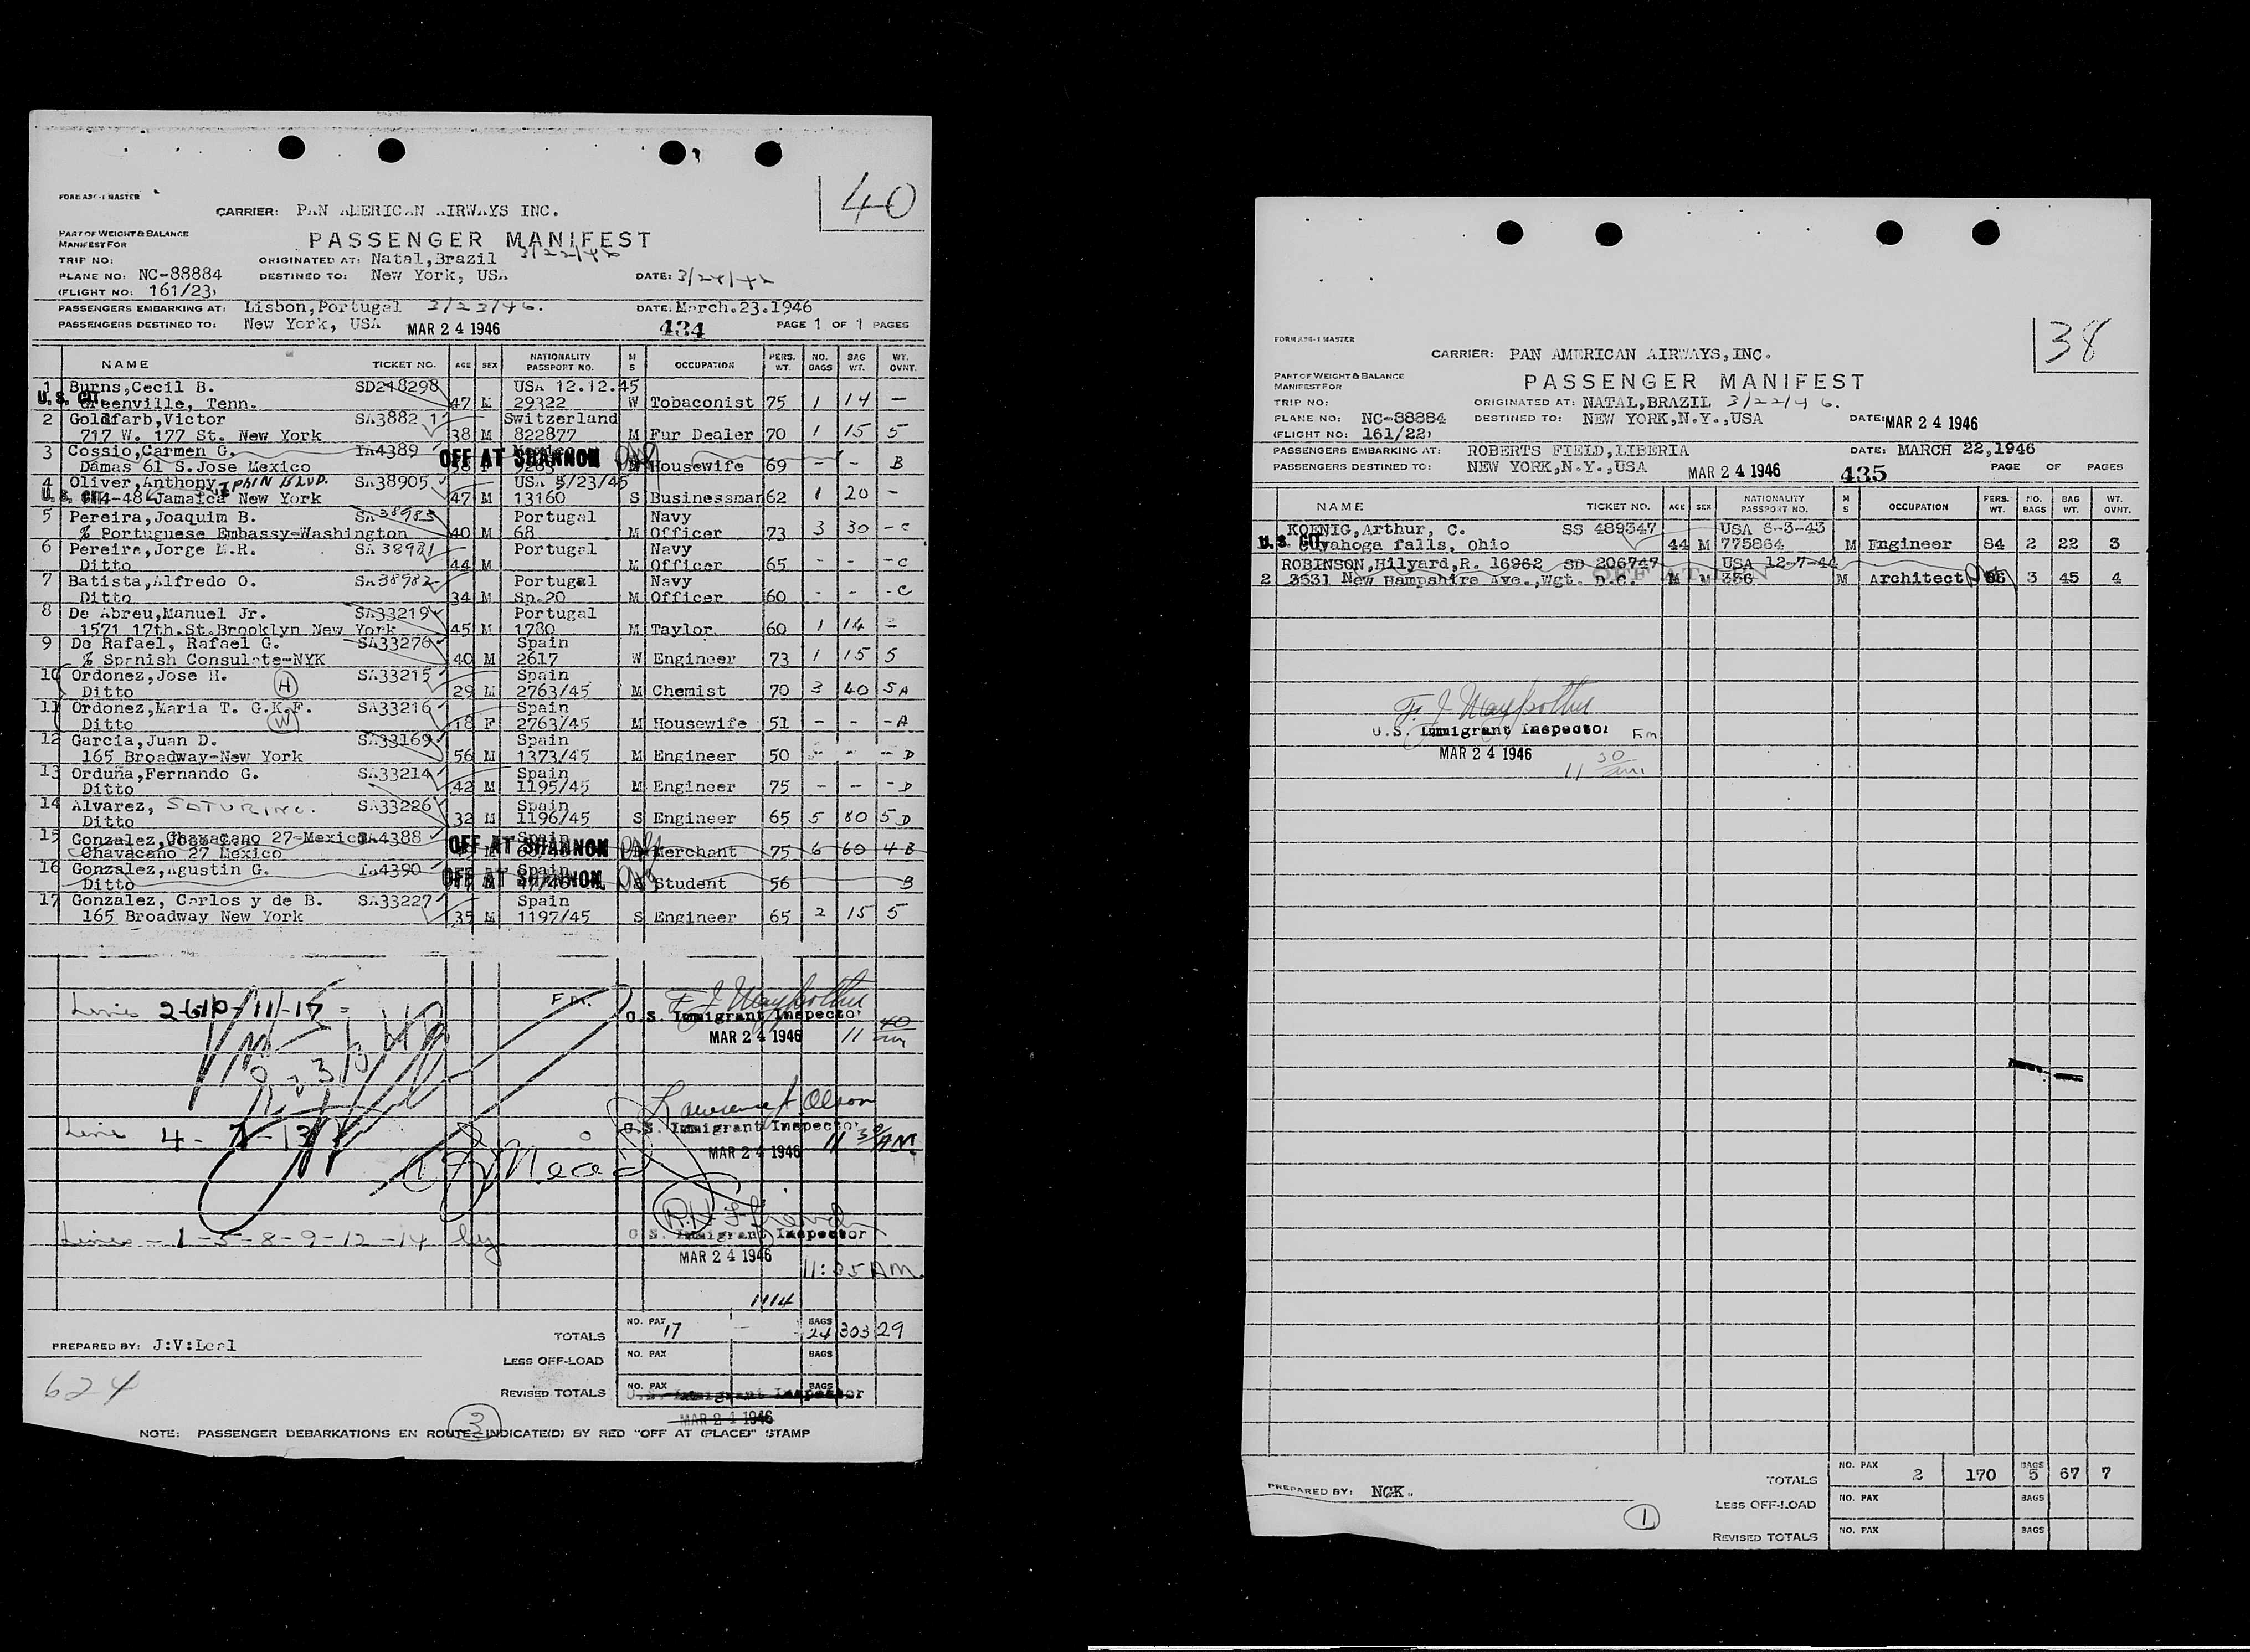 40
FORM A3C-1 MASTER
CARRIER: PAN AMERICAN AIRWAYS INC.
PART OF WEIGHT & BALANCE
MANIFEST FOR
PASSENGER MANIFEST
TRIP NO: ORIGINATED AT: Natal,Brazil
PLANE NO: NC-88884 DESTINED TO: New York, USA DATE:
(FLIGHT NO: 161/23)
PASSENGERS EMBARKING AT: Lisbon,Portugal 3/23/46. DATE: March.23.1946
PASSENGERS DESTINED TO: New York, USA MAR 24 1946 434 PAGE 1 OF 1 PAGES
NAME TICKET NO. AGE SEX NATIONALITY PASSPORT NO. M S OCCUPATION PERS. WT. NO. BAGS BAG WT. WT. OVNT.
1 Burns,Cecil B. SD248298 USA 12.12.45
U.S. CIT. Greenville, Tenn. 47 M 29322 W Tobaconist 75 1 14 -
2 Goldfarb,Victor SA3882 1 Switzerland
717 W. 177 St. New York 38 M 822877 M Fur Dealer 70 1 15 5
3 Cossio,Carmen G. IA4389 OFF AT SHANNON
Damas 61 S.Jose Mexico Housewife 69 - - B
4 Oliver,Anthony SA38905 USA 5/23/45
U.S. CIT. Jamaica New York 47 M 13160 S Businessman 62 1 20 -
5 Pereira,Joaquim B. SA38983 Portugal Navy
% Portuguese Embassy-Washington 40 M 68 M Officer 73 3 30 - C
6 Pereira,Jorge M.R. SA 38981 Portugal Navy
Ditto 44 M M Officer 65 - - - C
7 Batista,Alfredo O. SA38982 Portugal Navy
Ditto 34 M Sp.20 M Officer 60 - - - C
8 De Abreu,Manuel Jr. SA33219 Portugal
1571 17th.St.Brooklyn New York 45 M 1780 M Taylor 60 1 14 -
9 De Rafael, Rafael G. SA33276 Spain
% Spanish Consulate-NYK 40 M 2617 W Engineer 73 1 15 5
10 Ordonez,Jose H. (H) SA33215 Spain
Ditto 29 M 2763/45 M Chemist 70 3 40 5 A
11 Ordonez,Maria T. G.K.F. SA33216 Spain
Ditto (W) 18 F 2763/45 M Housewife 51 - - - A
12 Garcia,Juan D. SA33169 Spain
165 Broadway-New York 56 M 1373/45 M Engineer 50 - - - D
13 Orduña,Fernando G. SA33214 Spain
Ditto 42 M 1195/45 M Engineer 75 - - - D
14 Alvarez, SATURINO. SA33226 Spain
Ditto 32 M 1196/45 S Engineer 65 5 80 5 D
15 Gonzalez, Chavacano 27-Mexico IA4388 Spain OFF AT SHANNON
Chavacano 27 Mexico M Merchant 75 6 60 4 B
16 Gonzalez,Agustin G. IA4390 Spain OFF AT SHANNON
Ditto S Student 56 B
17 Gonzalez, Carlos y de B. SA33227 Spain
165 Broadway New York 35 M 1197/45 S Engineer 65 2 15 5
F.M.
U.S. Immigrant Inspector
MAR 24 1946 11 40 am
Lawrence A. Olson
U.S. Immigrant Inspector
MAR 24 1946 11 30 AM
Line 4 - 7 - 13
R.H. French
Lines - 1 - 5 - 8 - 9 - 12 - 14 by U.S. Immigrant Inspector
MAR 24 1946
1114
TOTALS NO. PAX 17 BAGS 24 303 29
PREPARED BY: J:V:Leal
LESS OFF-LOAD NO. PAX BAGS
624
REVISED TOTALS NO. PAX BAGS
U.S. Immigrant Inspector
MAR 24 1946
3
NOTE: PASSENGER DEBARKATIONS EN ROUTE INDICATE(D) BY RED "OFF AT (PLACE)" STAMP
38
FORM A3C-1 MASTER
CARRIER: PAN AMERICAN AIRWAYS,INC.
PART OF WEIGHT & BALANCE
MANIFEST FOR
PASSENGER MANIFEST
TRIP NO: ORIGINATED AT: NATAL,BRAZIL 3/22/46.
PLANE NO: NC-88884 DESTINED TO: NEW YORK,N.Y.,USA DATE: MAR 24 1946
(FLIGHT NO: 161/22)
PASSENGERS EMBARKING AT: ROBERTS FIELD,LIBERIA DATE: MARCH 22,1946
PASSENGERS DESTINED TO: NEW YORK,N.Y.,USA MAR 24 1946 435 PAGE OF PAGES
NAME TICKET NO. AGE SEX NATIONALITY PASSPORT NO. M S OCCUPATION PERS. WT. NO. BAGS BAG WT. WT. OVNT.
KOENIG,Arthur, C. SS 489347 USA 6-3-43
U.S. CIT. Cuyahoga falls, Ohio 44 M 775864 M Engineer 84 2 22 3
ROBINSON,Hilyard,R. 16962 SD 206747 USA 12-7-44
2 3531 New Hampshire Ave.,Wgt. D.C. M M 356 M Architect 86 3 45 4
U.S. Immigrant Inspector F.M.
MAR 24 1946
11 30 am
TOTALS NO. PAX 2 170 BAGS 5 67 7
PREPARED BY: NGK.
LESS OFF-LOAD NO. PAX BAGS
1
REVISED TOTALS NO. PAX BAGS